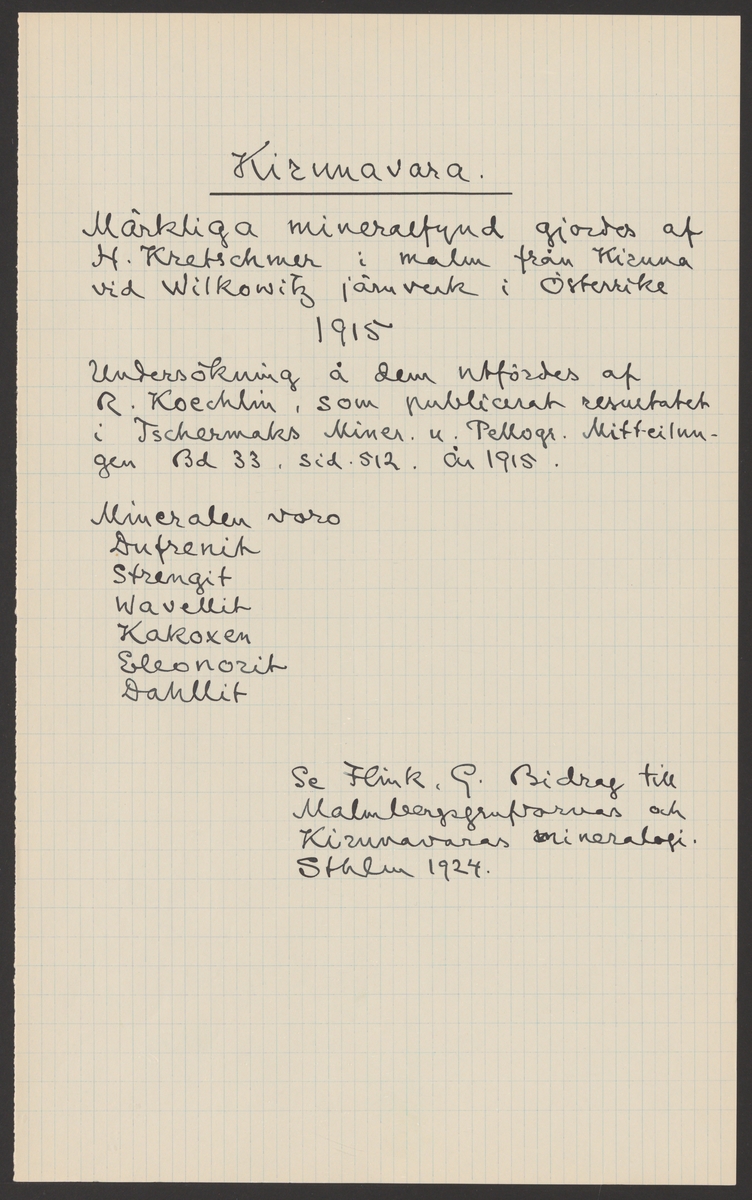 Kirunavara.
Märkliga mineralfynd gjordes af
H. Kretschmer i malm från Kiruna
vid Wilkowitz järnverk i Österrike
1915
Undersökning å dem utfördes af
R. Koechlin, som publicerat resultatet
i Tschermaks Miner. u. Petrogr. Mitteilun-
gen Bd 33, sid. 512. År 1915.
Mineralen voro
Dufrenit
Strengit
Wavellit
Kakoxen
Eleonorit
Dahllit
Se Flink, G. Bidrag till
Malmbergsgrufvornas och
Kirunavaras mineralogi.
Sthlm 1924.